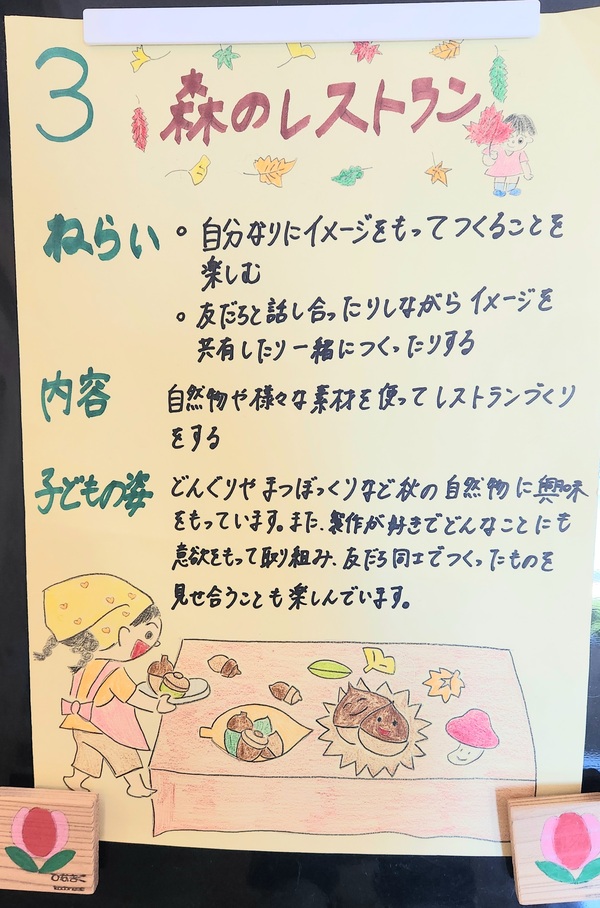 3
森のレストラン
ねらい
。自分なりにイメージをもってつくることを
楽しむ
。友だちと話し合ったりしながらイメージを
共有したり一緒につくったりする
内容
自然物や様々な素材を使ってレストランづくり
をする
子どもの姿
どんぐりやまつぼっくりなど秋の自然物に興味
をもっています。また、製作が好きでどんなことにも
意欲をもって取り組み、友だち同士でつくったものを
見せ合うことも楽しんでいます。